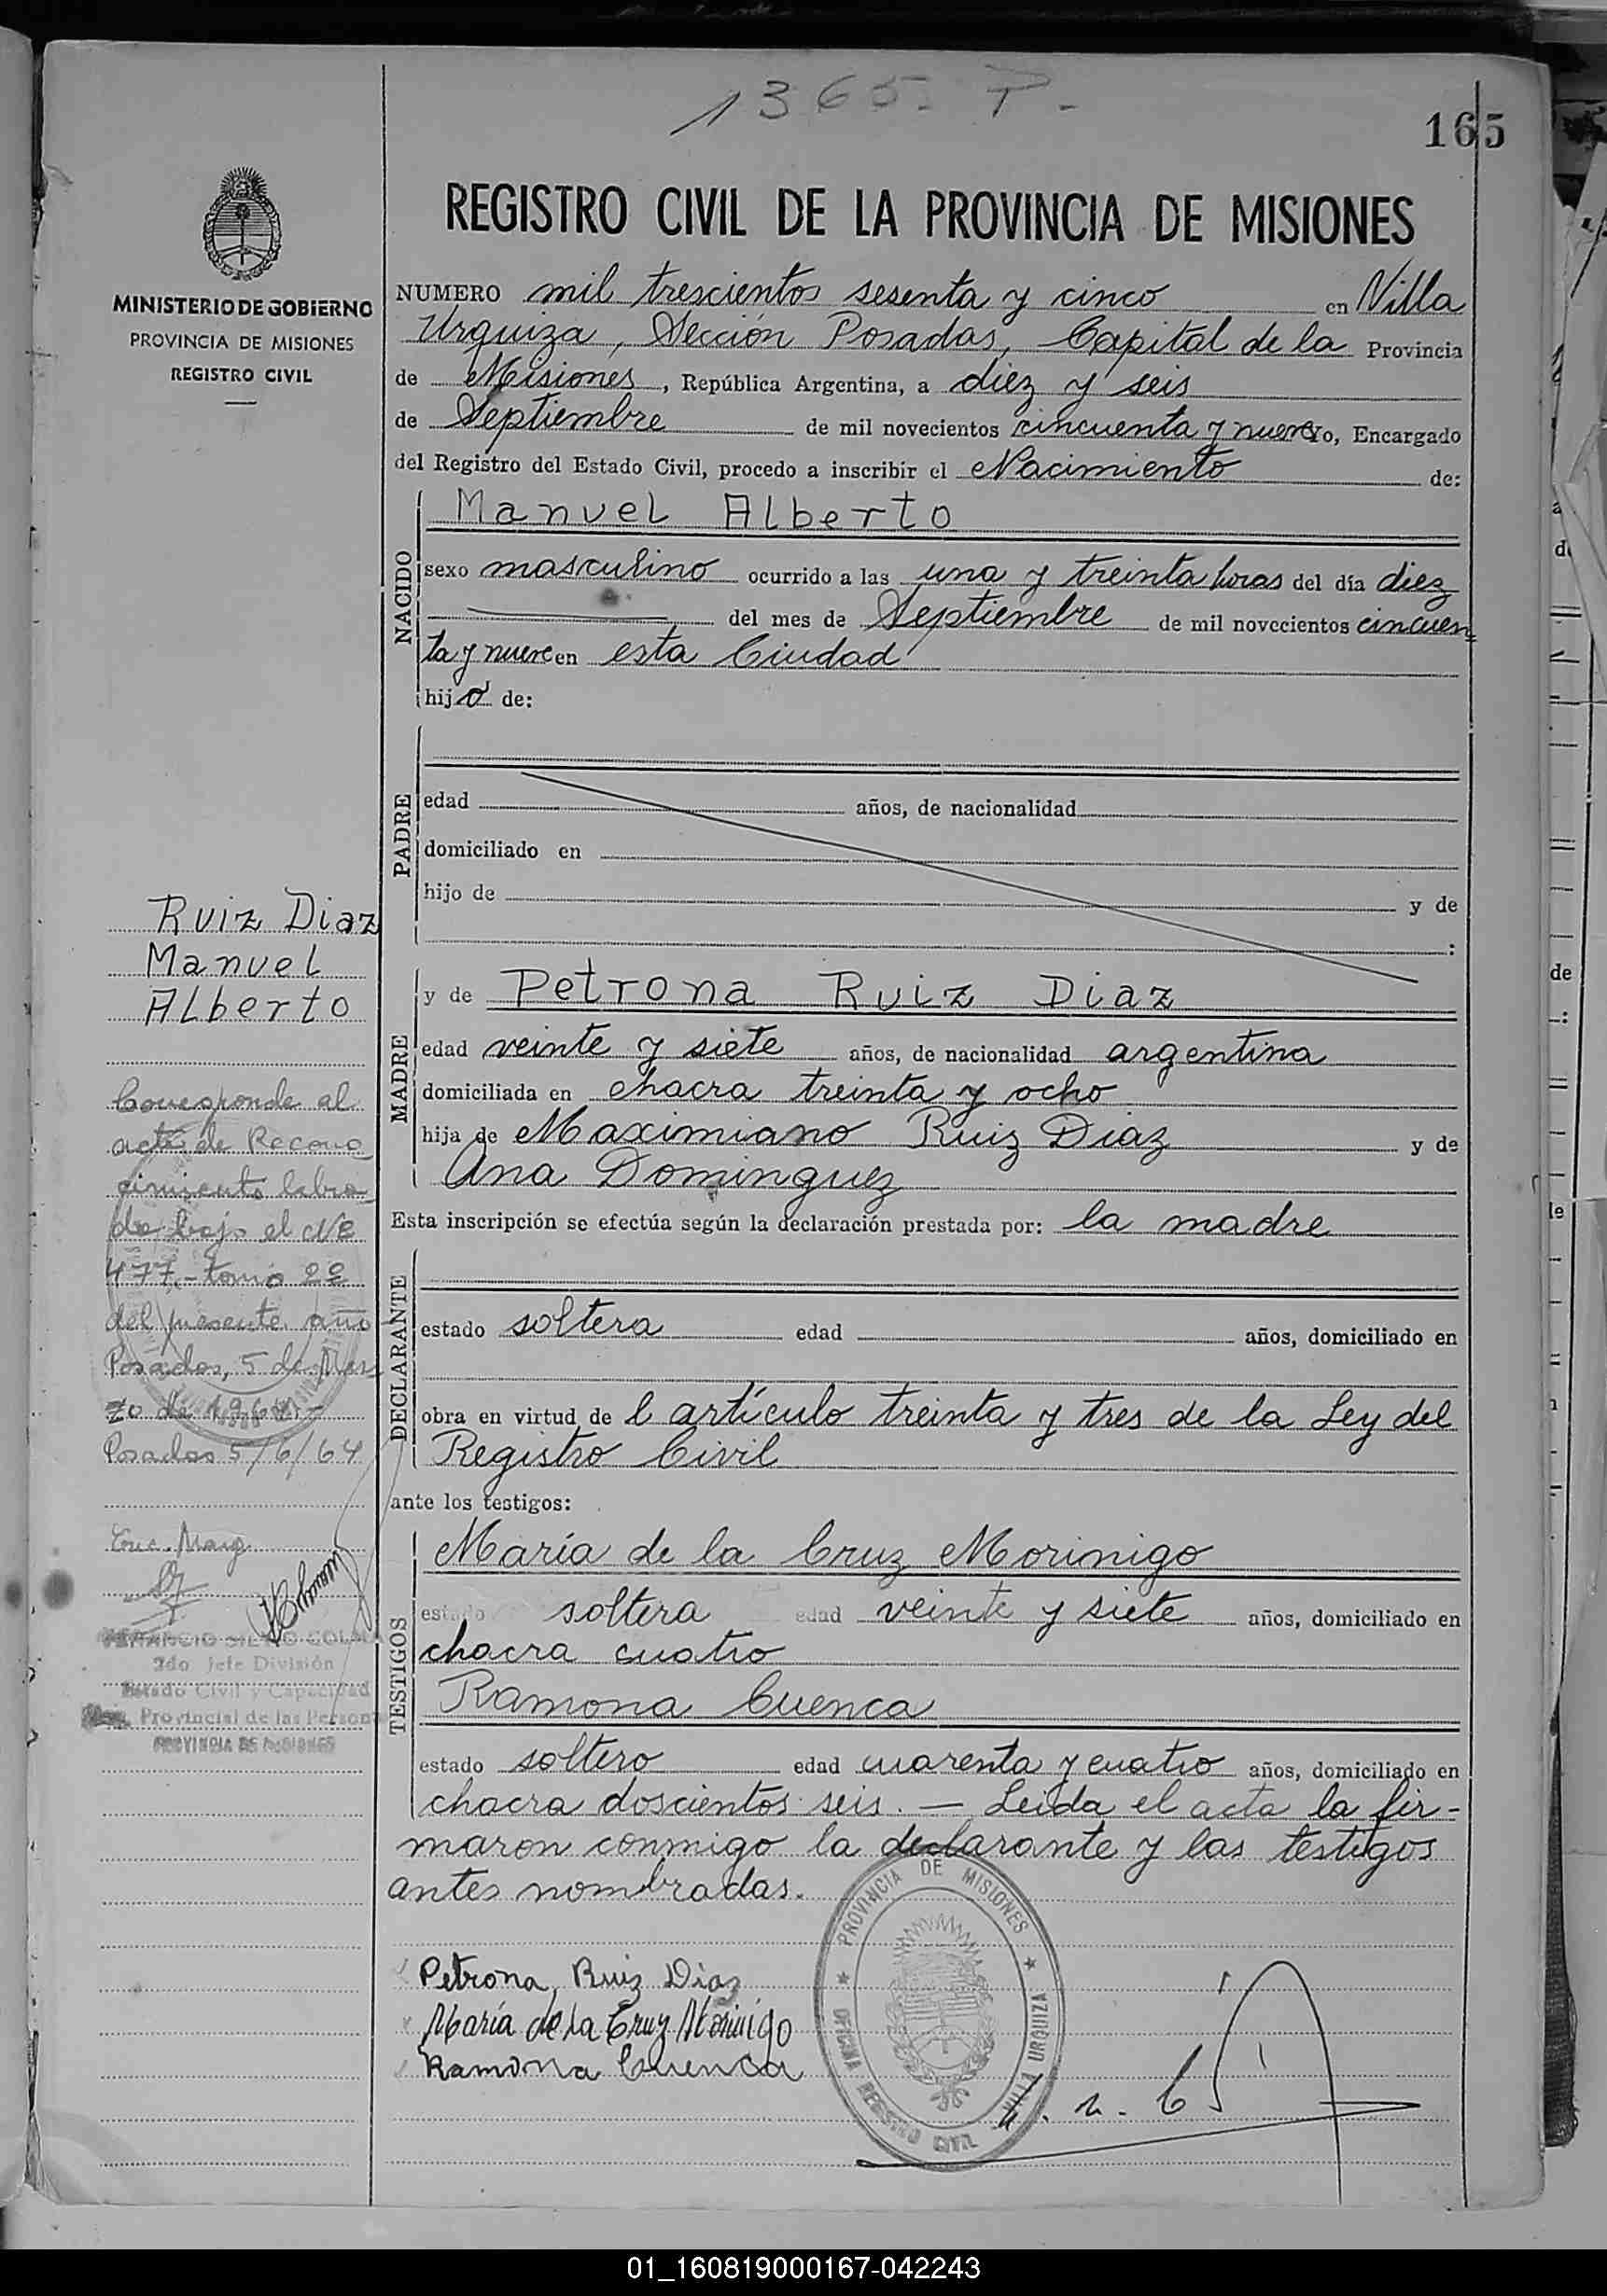 1365. P.-
165
MINISTERIO DE GOBIERNO
PROVINCIA DE MISIONES
REGISTRO CIVIL
REGISTRO CIVIL DE LA PROVINCIA DE MISIONES
NUMERO mil trescientos sesenta y cinco en Villa
Urquiza, Sección Posadas, Capital de la Provincia
de Misiones, República Argentina, a diez y seis
de Septiembre de mil novecientos cincuenta y nueve yo, Encargado
del Registro del Estado Civil, procedo a inscribir el Nacimiento de:
NACIDO
Manuel Alberto
sexo masculino ocurrido a las una y treinta horas del día diez
del mes de Septiembre de mil novecientos cincuen=
ta y nueve en esta Ciudad
hijo de:
PADRE
edad años, de nacionalidad
domiciliado en
hijo de y de
:
MADRE
y de Petrona Ruiz Diaz
edad veinte y siete años, de nacionalidad argentina
domiciliada en chacra treinta y ocho
hija de Maximiano Ruiz Diaz y de
Ana Dominguez
Esta inscripción se efectúa según la declaración prestada por: la madre
DECLARANTE
estado soltera edad años, domiciliado en
obra en virtud de l artículo treinta y tres de la Ley del
Registro Civil
ante los testigos:
TESTIGOS
María de la Cruz Morinigo
estado soltera edad veinte y siete años, domiciliado en
chacra cuatro
Ramona Cuenca
estado soltero edad cuarenta y cuatro años, domiciliado en
chacra doscientos seis. — Leida el acta la fir-
maron conmigo la declarante y las testigos
antes nombradas.
Petrona Ruiz Diaz
María de la Cruz Morinigo
Ramona Cuenca
PROVINCIA DE MISIONES
OFICINA REGISTRO CIVIL VILLA URQUIZA
Ruiz Diaz
Manuel
Alberto
Corresponde al
acta de Recono
cimiento labra
da bajo el Nº
477.- tomo 2º
del presente año
Posadas, 5 de Mar
zo de 1964.-
Posadas 5/6/64
2do Jefe División
Estado Civil y Capacidad
Provincial de las Person
PROVINCIA DE MISIONES
01_160819000167-042243